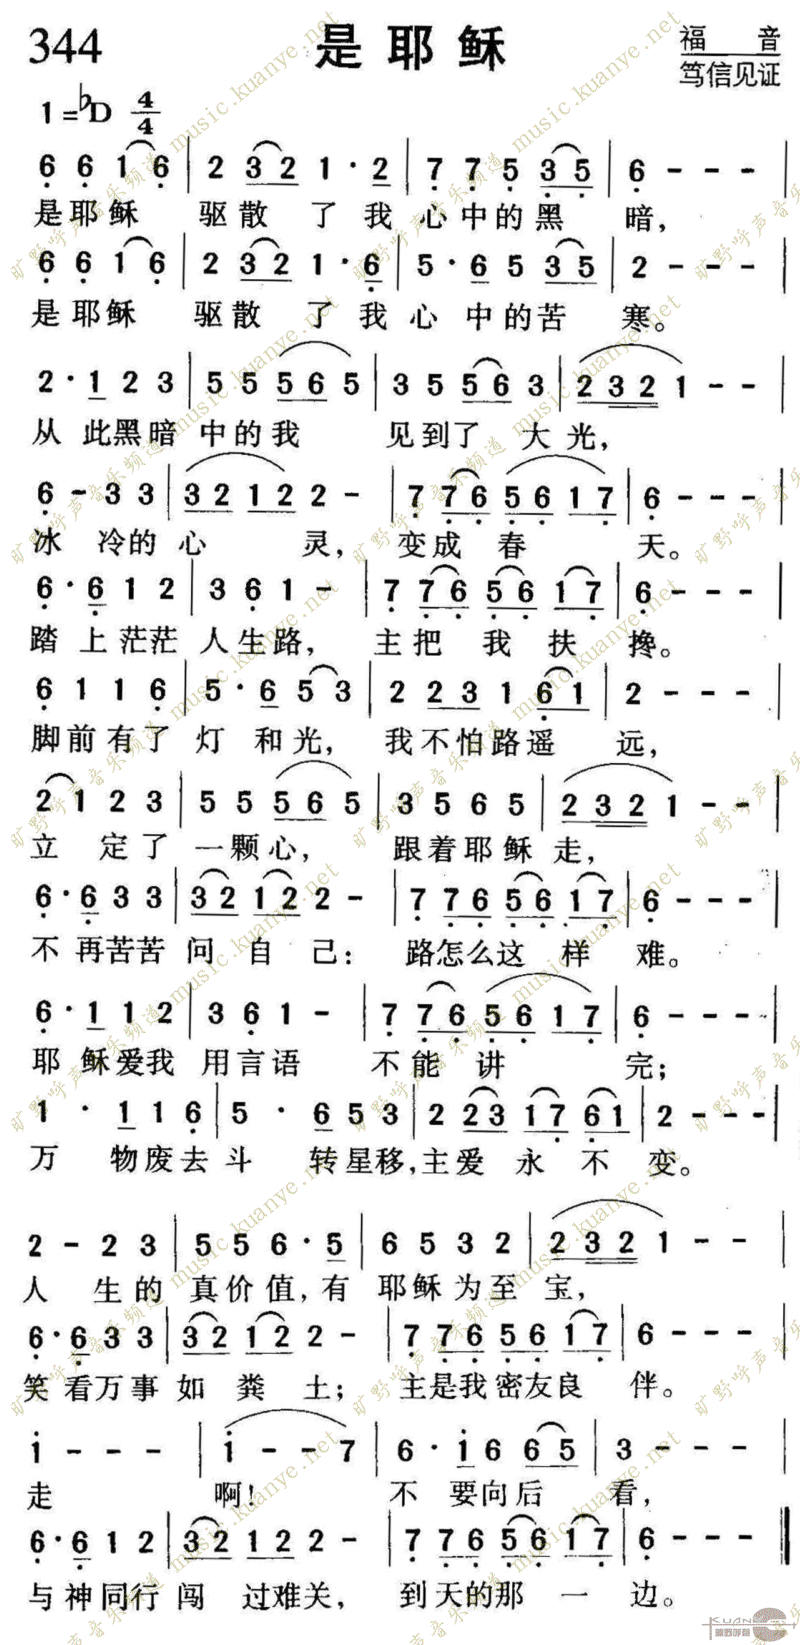 344 是耶稣 福音
笃信见证
1=♭D 4/4
6 6 1 6 | 2 3 2 1 · 2 | 7 7 5 3 5 | 6 - - - |
是耶稣 驱散了我心中的黑暗，
6 6 1 6 | 2 3 2 1 · 6 | 5 · 6 5 3 5 | 2 - - - |
是耶稣 驱散了我心中的苦寒。
2 · 1 2 3 | 5 5 5 6 5 | 3 5 5 6 3 | 2 3 2 1 - - |
从此黑暗中的我 见到了大光，
6 - 3 3 | 3 2 1 2 2 - | 7 7 6 5 6 1 7 | 6 - - - |
冰冷的心灵，变成春天。
6 · 6 1 2 | 3 6 1 - | 7 7 6 5 6 1 7 | 6 - - - |
踏上茫茫人生路，主把我扶搀。
6 1 1 6 | 5 · 6 5 3 | 2 2 3 1 6 1 | 2 - - - |
脚前有了灯和光，我不怕路遥远，
2 1 2 3 | 5 5 5 6 5 | 3 5 6 5 | 2 3 2 1 - - |
立定了一颗心，跟着耶稣走，
6 · 6 3 3 | 3 2 1 2 2 - | 7 7 6 5 6 1 7 | 6 - - - |
不再苦苦问自己：路怎么这样难。
6 · 1 1 2 | 3 6 1 - | 7 7 6 5 6 1 7 | 6 - - - |
耶稣爱我用言语 不能讲完；
1 · 1 1 6 | 5 · 6 5 3 | 2 2 3 1 7 6 1 | 2 - - - |
万物废去斗转星移，主爱永不变。
2 - 2 3 | 5 5 6 · 5 | 6 5 3 2 | 2 3 2 1 - - |
人生的真价值，有耶稣为至宝，
6 · 6 3 3 | 3 2 1 2 2 - | 7 7 6 5 6 1 7 | 6 - - - |
笑看万事如粪土；主是我密友良伴。
i - - - | i - - 7 | 6 · i 6 6 5 | 3 - - - |
走啊！不要向后看，
6 · 6 1 2 | 3 2 1 2 2 - | 7 7 6 5 6 1 7 | 6 - - - ‖
与神同行闯过难关，到天的那一边。
旷野呼声音乐频道 music.kuanye.net